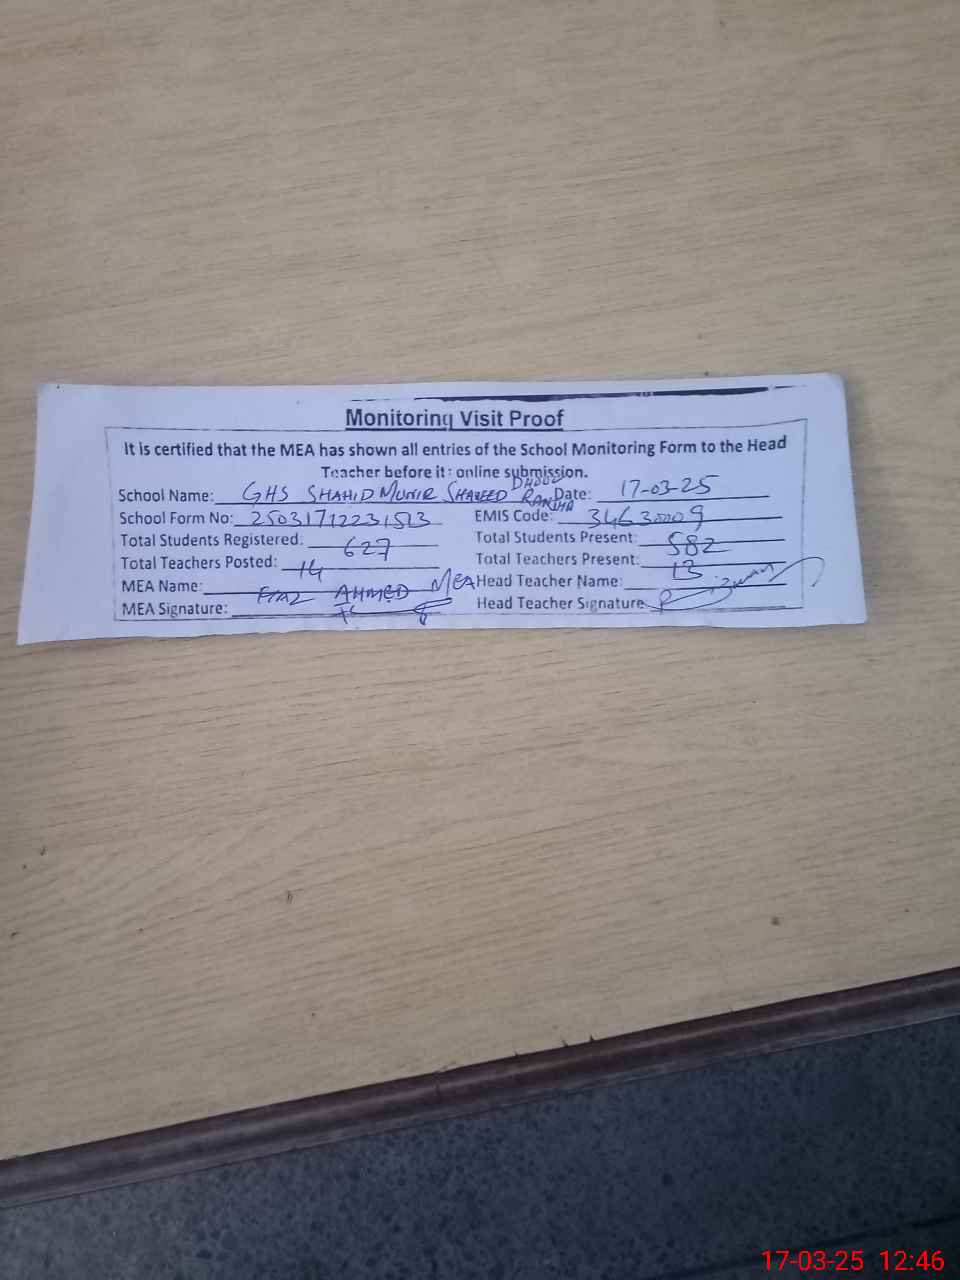 Monitoring Visit Proof
It is certified that the MEA has shown all entries of the School Monitoring Form to the Head
Teacher before it: online submission.
School Name: GHS SHAHID MUNIR SHAHEED RANJHA Date: 17-03-25
School Form No: 25031712231513 EMIS Code: 34630009
Total Students Registered: 627 Total Students Present: 582
Total Teachers Posted: 14 Total Teachers Present: 13
MEA Name: AHMED MEA Head Teacher Name:
MEA Signature: Head Teacher Signature
17-03-25 12:46